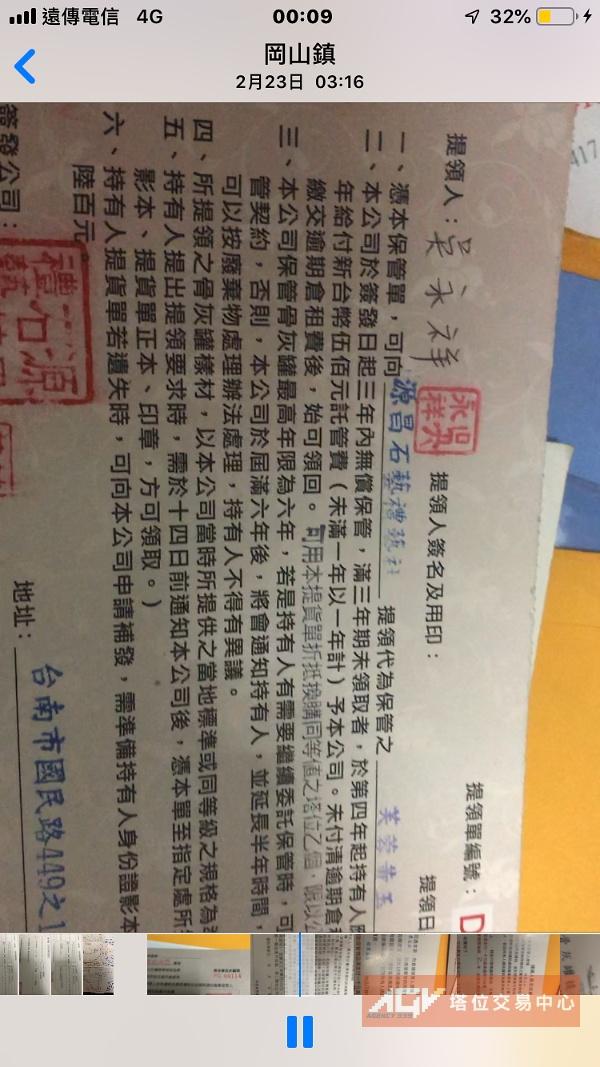 遠傳電信 4G
00:09
32%
岡山鎮
2月23日 03:16
417
提領單編號：D
提領人：吳永祥
提領人簽名及用印：
提領日
一、憑本保管單，可向源昌石藝禮藝社 提領代為保管之 芙蓉黃玉
二、本公司於簽發日起三年內無償保管，滿三年期未領取者，於第四年起持有人
年給付新台幣伍佰元託管費（未滿一年以一年計）予本公司。未付清逾期倉
繳交逾期倉租費後，始可領回。可用本提貨單折抵換購同等值之塔位乙個，限以
三、本公司保管骨灰罐最高年限為六年，若是持有人有需要繼續委託保管時，可
管契約，否則，本公司於屆滿六年後，將會通知持有人，並延長半年時間，
可以按廢棄物處理辦法處理，持有人不得有異議。
四、所提領之骨灰罐樣材，以本公司當時所提供之當地標準或同等級之規格為
五、持有人提出提領要求時，需於十四日前通知本公司後，憑本單至指定處所
影本、提貨單正本、印章，方可領取。）
六、持有人提貨單若遺失時，可向本公司申請補發，需準備持有人身份證影本
陸百元。
簽發公司：
地址：台南市國民路449之1
AGV 塔位交易中心